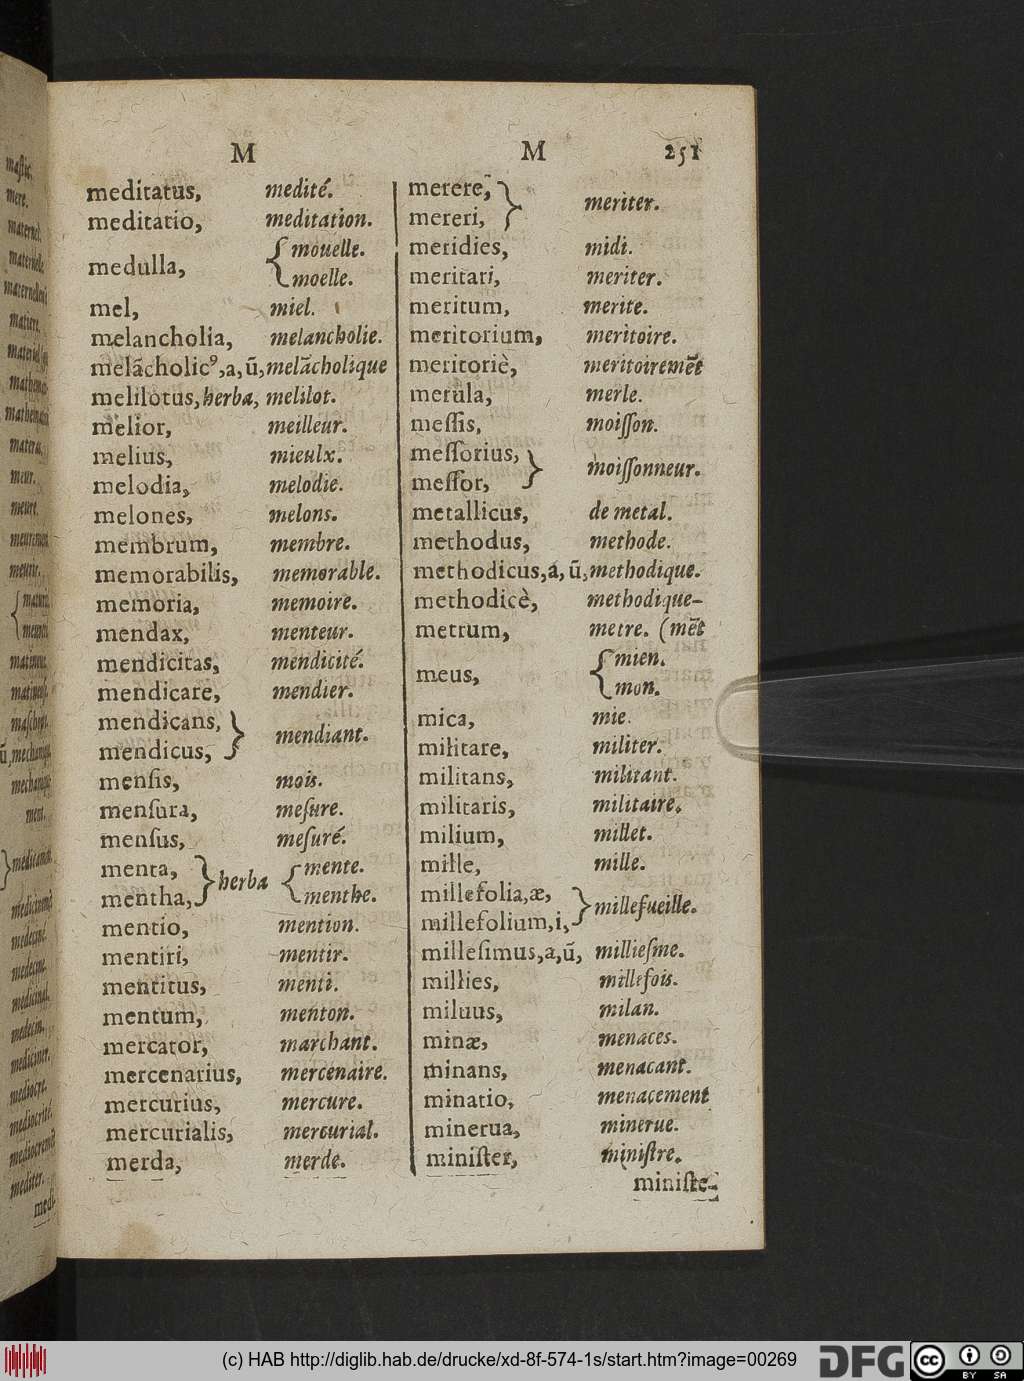 M M 251
meditatus, medité.
meditatio, meditation.
medulla, { mouelle.
moelle.
mel, miel.
melancholia, melancholie.
melācholicꝰ,a,ũ, melācholique
melilotus, herba, melilot.
melior, meilleur.
melius, mieulx.
melodia, melodie.
melones, melons.
membrum, membre.
memorabilis, memorable.
memoria, memoire.
mendax, menteur.
mendicitas, mendicité.
mendicare, mendier.
mendicans, }
mendicus, mendiant.
menſis, mois.
menſura, meſure.
menſus, meſuré.
menta, } herba { mente.
mentha, menthe.
mentio, mention.
mentiri, mentir.
mentitus, menti.
mentum, menton.
mercator, marchant.
mercenarius, mercenaire.
mercurius, mercure.
mercurialis, mercurial.
merda, merde.
merere, }
mereri, meriter.
meridies, midi.
meritari, meriter.
meritum, merite.
meritorium, meritoire.
meritoriè, meritoiremēt
merula, merle.
meſſis, moiſſon.
meſſorius, }
meſſor, moiſſonneur.
metallicus, de metal.
methodus, methode.
methodicus,a, ũ, methodique.
methodicè, methodique-
metrum, metre. (mēt
meus, { mien.
mon.
mica, mie.
militare, militer.
militans, militant.
militaris, militaire.
milium, millet.
mille, mille.
millefolia,æ, }
millefolium,i, millefueille.
milleſimus,a,ũ, millieſme.
millies, millefois.
miluus, milan.
minæ, menaces.
minans, menacant.
minatio, menacement
minerua, minerue.
miniſter, miniſtre.
miniſte-
(c) HAB http://diglib.hab.de/drucke/xd-8f-574-1s/start.htm?image=00269 DFG cc BY SA